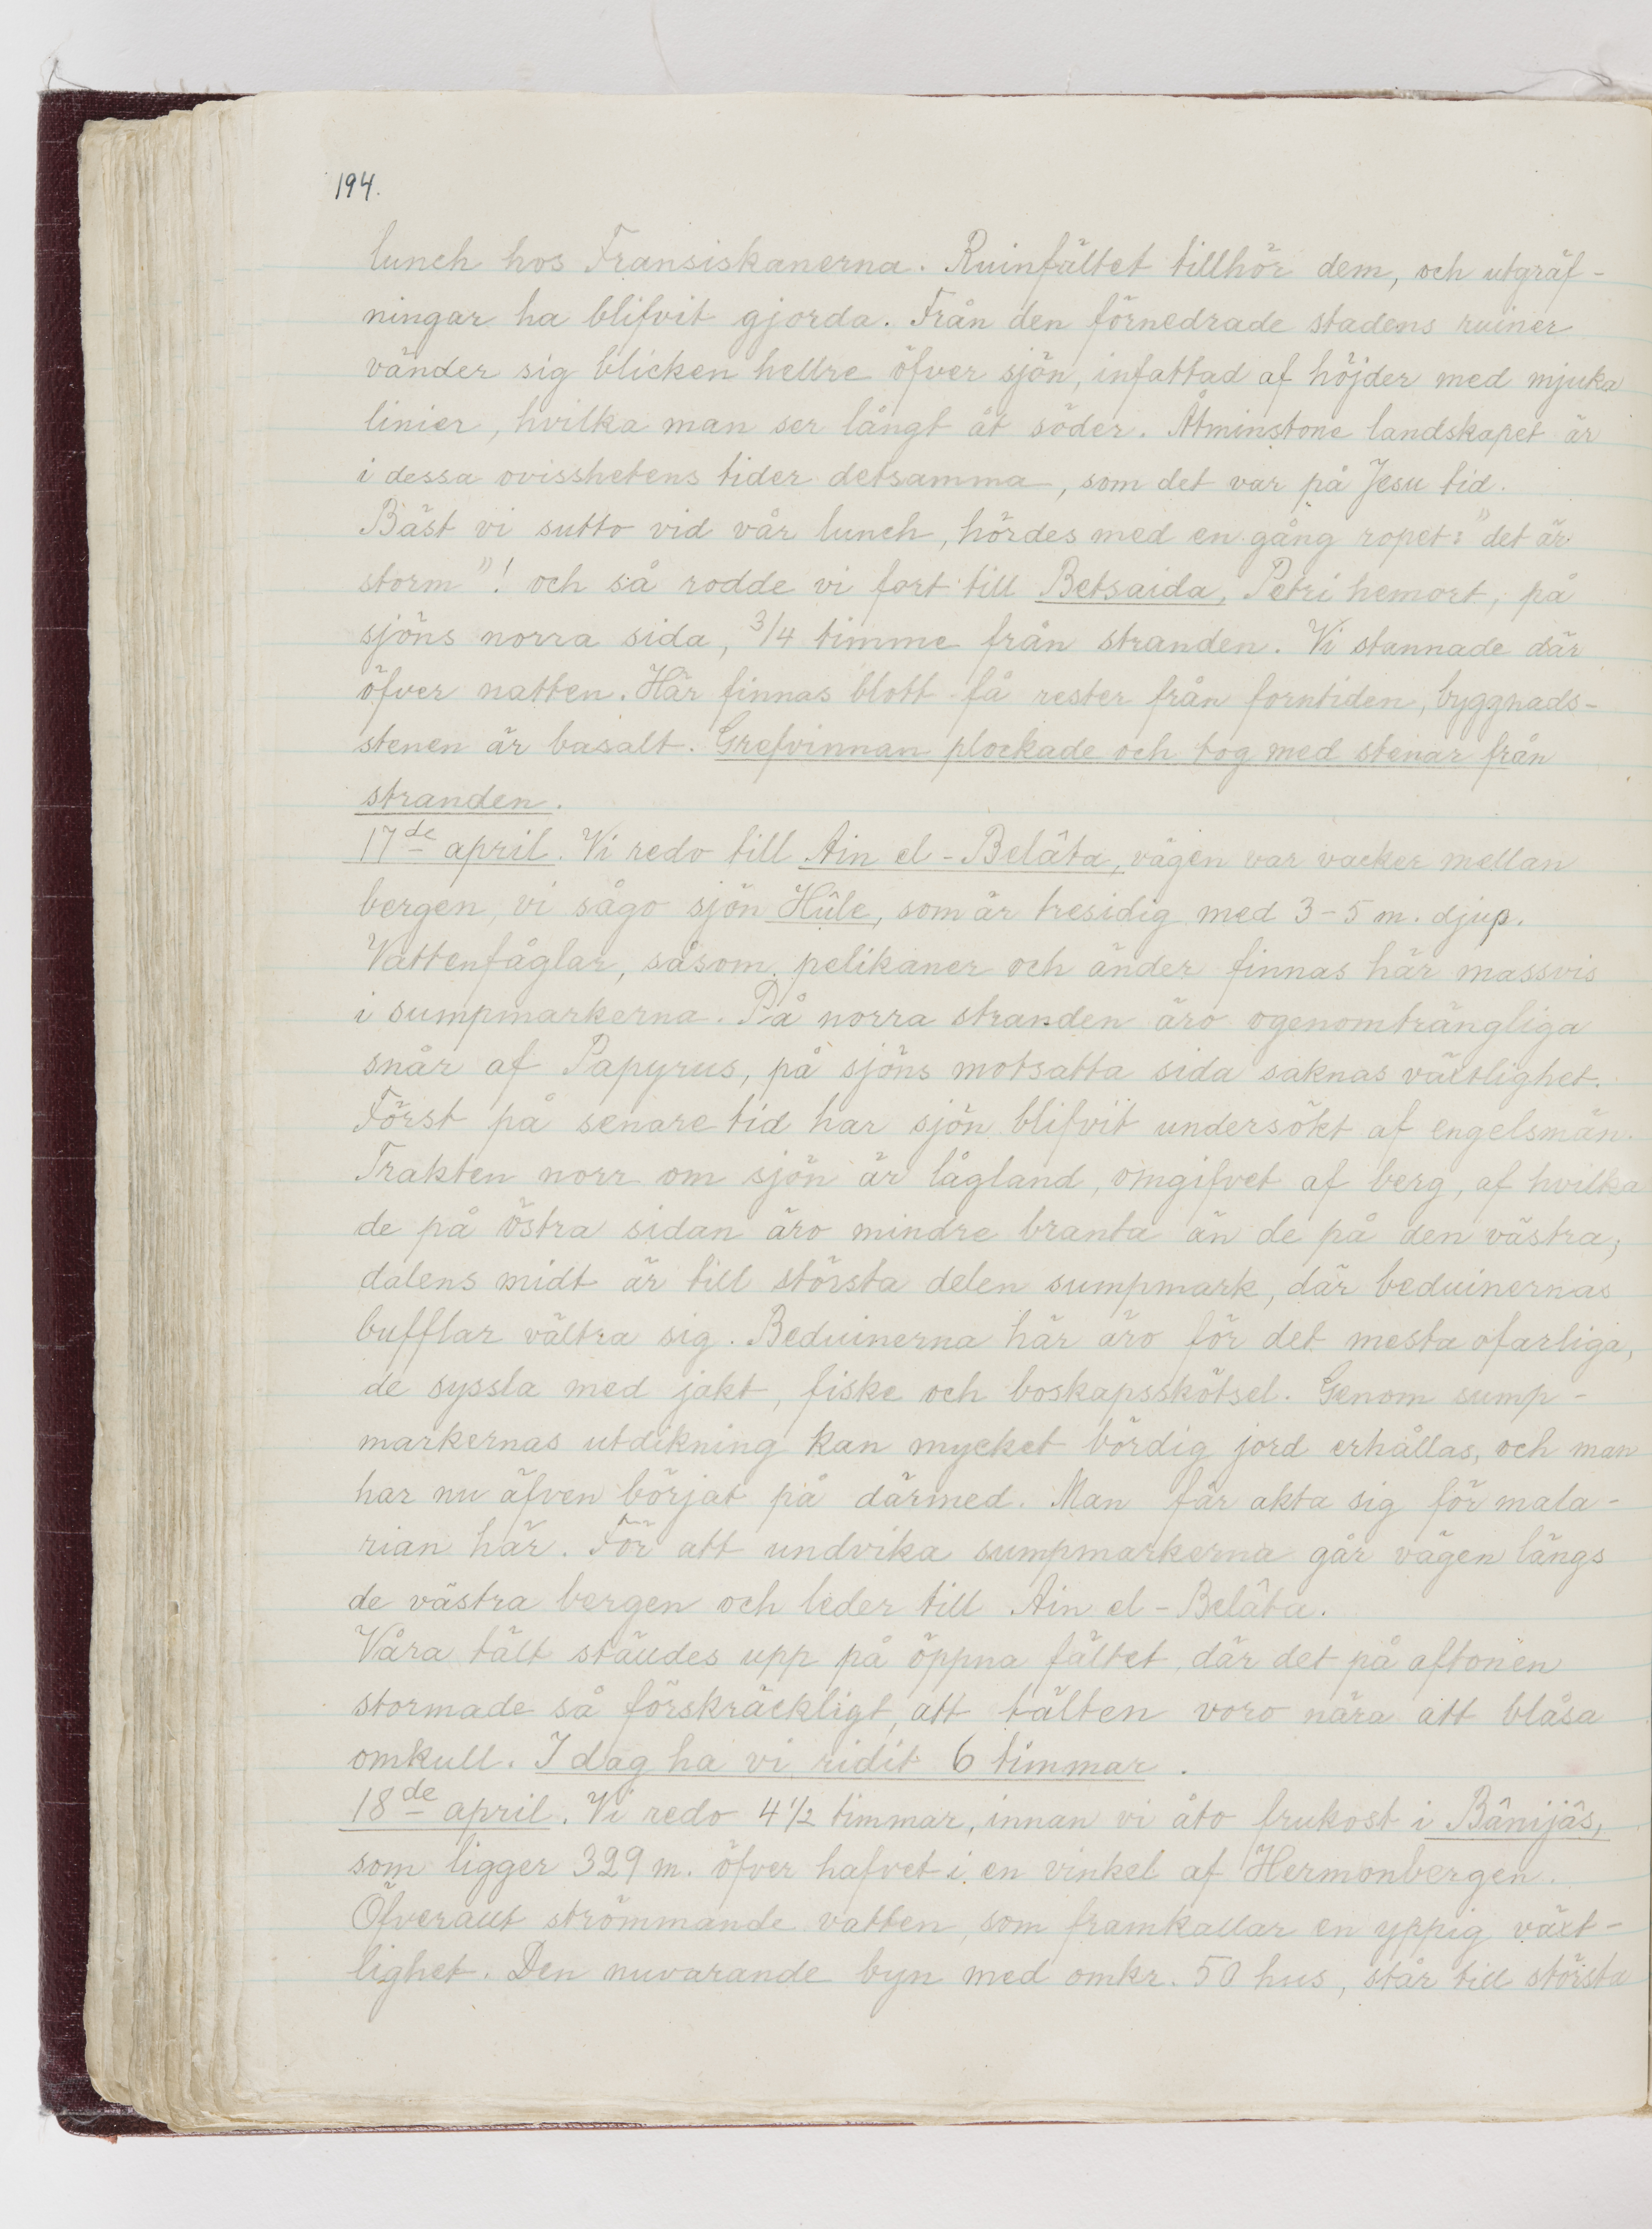 194.
lunch hos Fransiskanerna. Ruinfältet tillhör dem, och utgräf-
ningar ha blifvit gjorda. Från den förnedrade stadens ruiner
vänder sig blicken hellre öfver sjön, infattad af höjder med mjuka
linier, hvilka man ser långt åt söder. Åtminstone landskapet är
i dessa ovisshetens tider detsamma, som det var på Jesu tid.
Bäst vi sutto vid vår lunch, hördes med en gång ropet: "det är
storm"! och så rodde vi fort till Betsaida, Petri hemort, på
sjöns norra sida, 3/4 timme från stranden. Vi stannade där
öfver natten. Här finnas blott få rester från forntiden, byggnads-
stenen är basalt. Grefvinnan plockade och tog med stenar från
stranden.
17de april. Vi redo till Ain el-Belâta, vägen var vacker mellan
bergen, vi sågo sjön Hûle, som är tresidig med 3-5 m. djup.
Vattenfåglar, såsom pelikaner och änder finnas här massvis
i sumpmarkerna. På norra stranden äro ogenomträngliga
snår af Papyrus, på sjöns motsatta sida saknas växtlighet.
Först på senare tid har sjön blifvit undersökt af engelsmän.
Trakten norr om sjön är lågland, omgifvet af berg, af hvilka
de på östra sidan äro mindre branta än de på den västra;
dalens midt är till största delen sumpmark, där beduinernas
bufflar vältra sig. Beduinerna här äro för det mesta ofarliga,
de syssla med jakt, fiske och boskapsskötsel. Genom sump-
markernas utdikning kan mycket bördig jord erhållas, och man
har nu äfven börjat på därmed. Man får akta sig för mala-
rian här. För att undvika sumpmarkerna går vägen längs
de västra bergen och leder till Ain el-Belâta.
Våra tält ställdes upp på öppna fältet, där det på aftonen
stormade så förskräckligt, att tälten voro nära att blåsa
omkull. I dag ha vi ridit 6 timmar.
18de april. Vi redo 4 1/2 timmar, innan vi åto frukost i Bânijâs,
som ligger 329 m. öfver hafvet i en vinkel af Hermonbergen.
Öfverallt strömmande vatten, som framkallar en yppig växt-
lighet. Den nuvarande byn med omkr. 50 hus, står till största